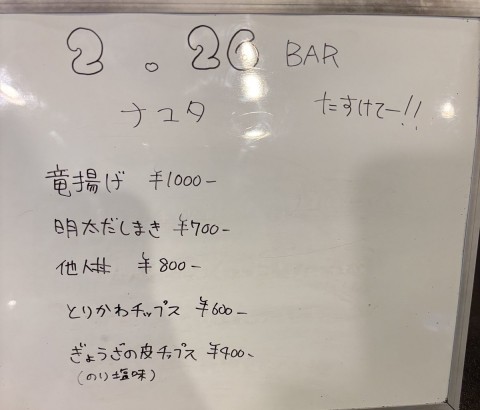 2.26 BAR
ナユタ たすけてー!!
竜揚げ ¥1000-
明太だしまき ¥700-
他人丼 ¥800-
とりかわチップス ¥600-
ぎょうざの皮チップス ¥400-
(のり塩味)